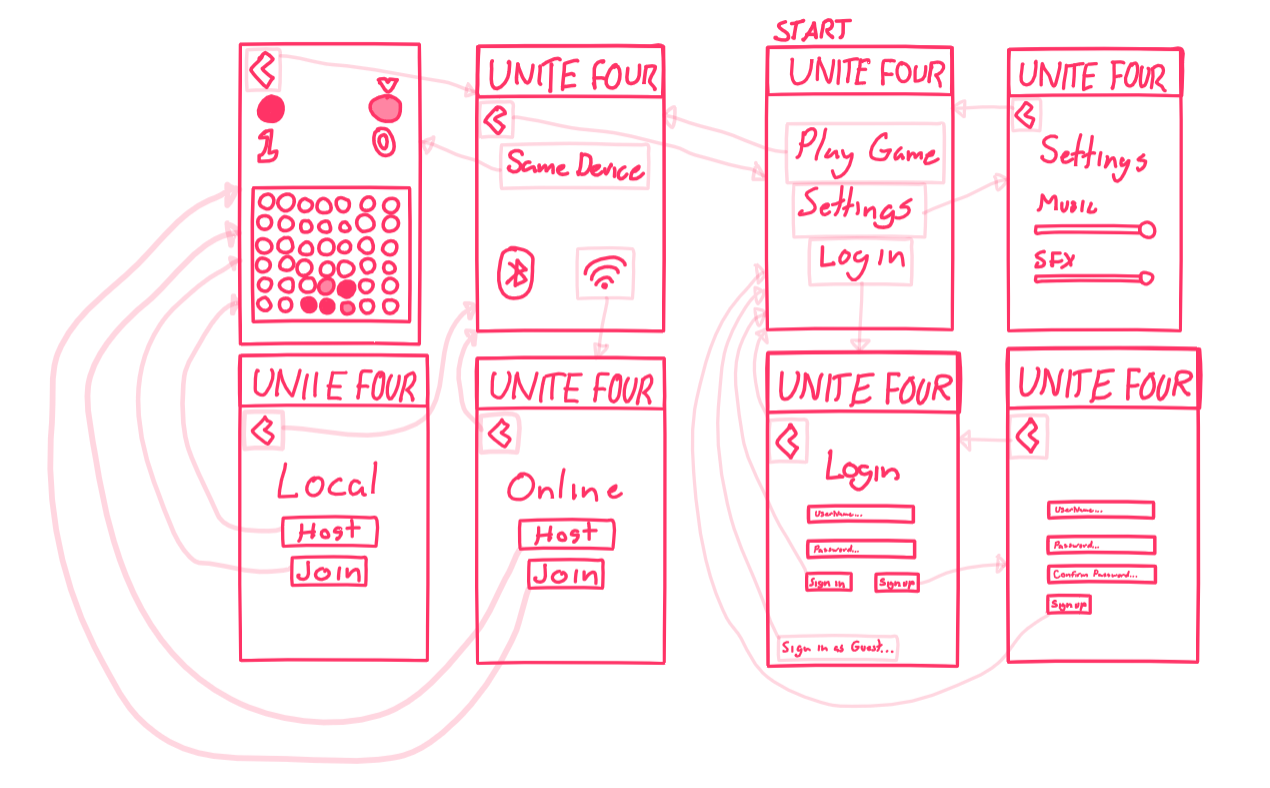 START
1
0
UNITE FOUR
Same Device
UNITE FOUR
Play Game
Settings
Login
UNITE FOUR
Settings
Music
SFX
UNIIE FOUR
Local
Host
Join
UNITE FOUR
Online
Host
Join
UNITE FOUR
Login
UserName...
Password...
Sign in
Sign up
Sign in as Guest...
UNITE FOUR
UserName...
Password...
Confirm Password...
Sign up